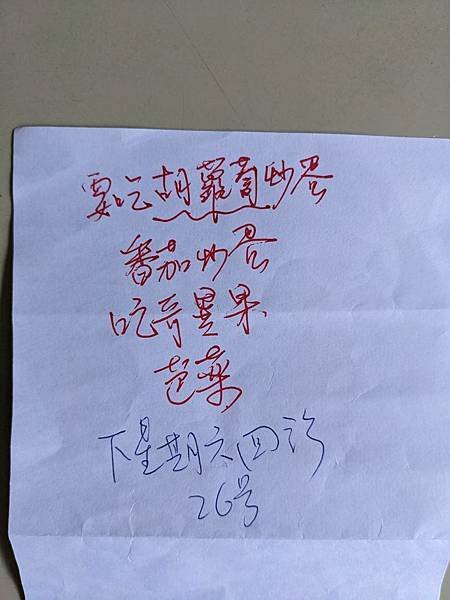 要吃胡蘿蔔炒蛋
番茄炒蛋
吃奇異果
芭樂
下星期六回診
26号